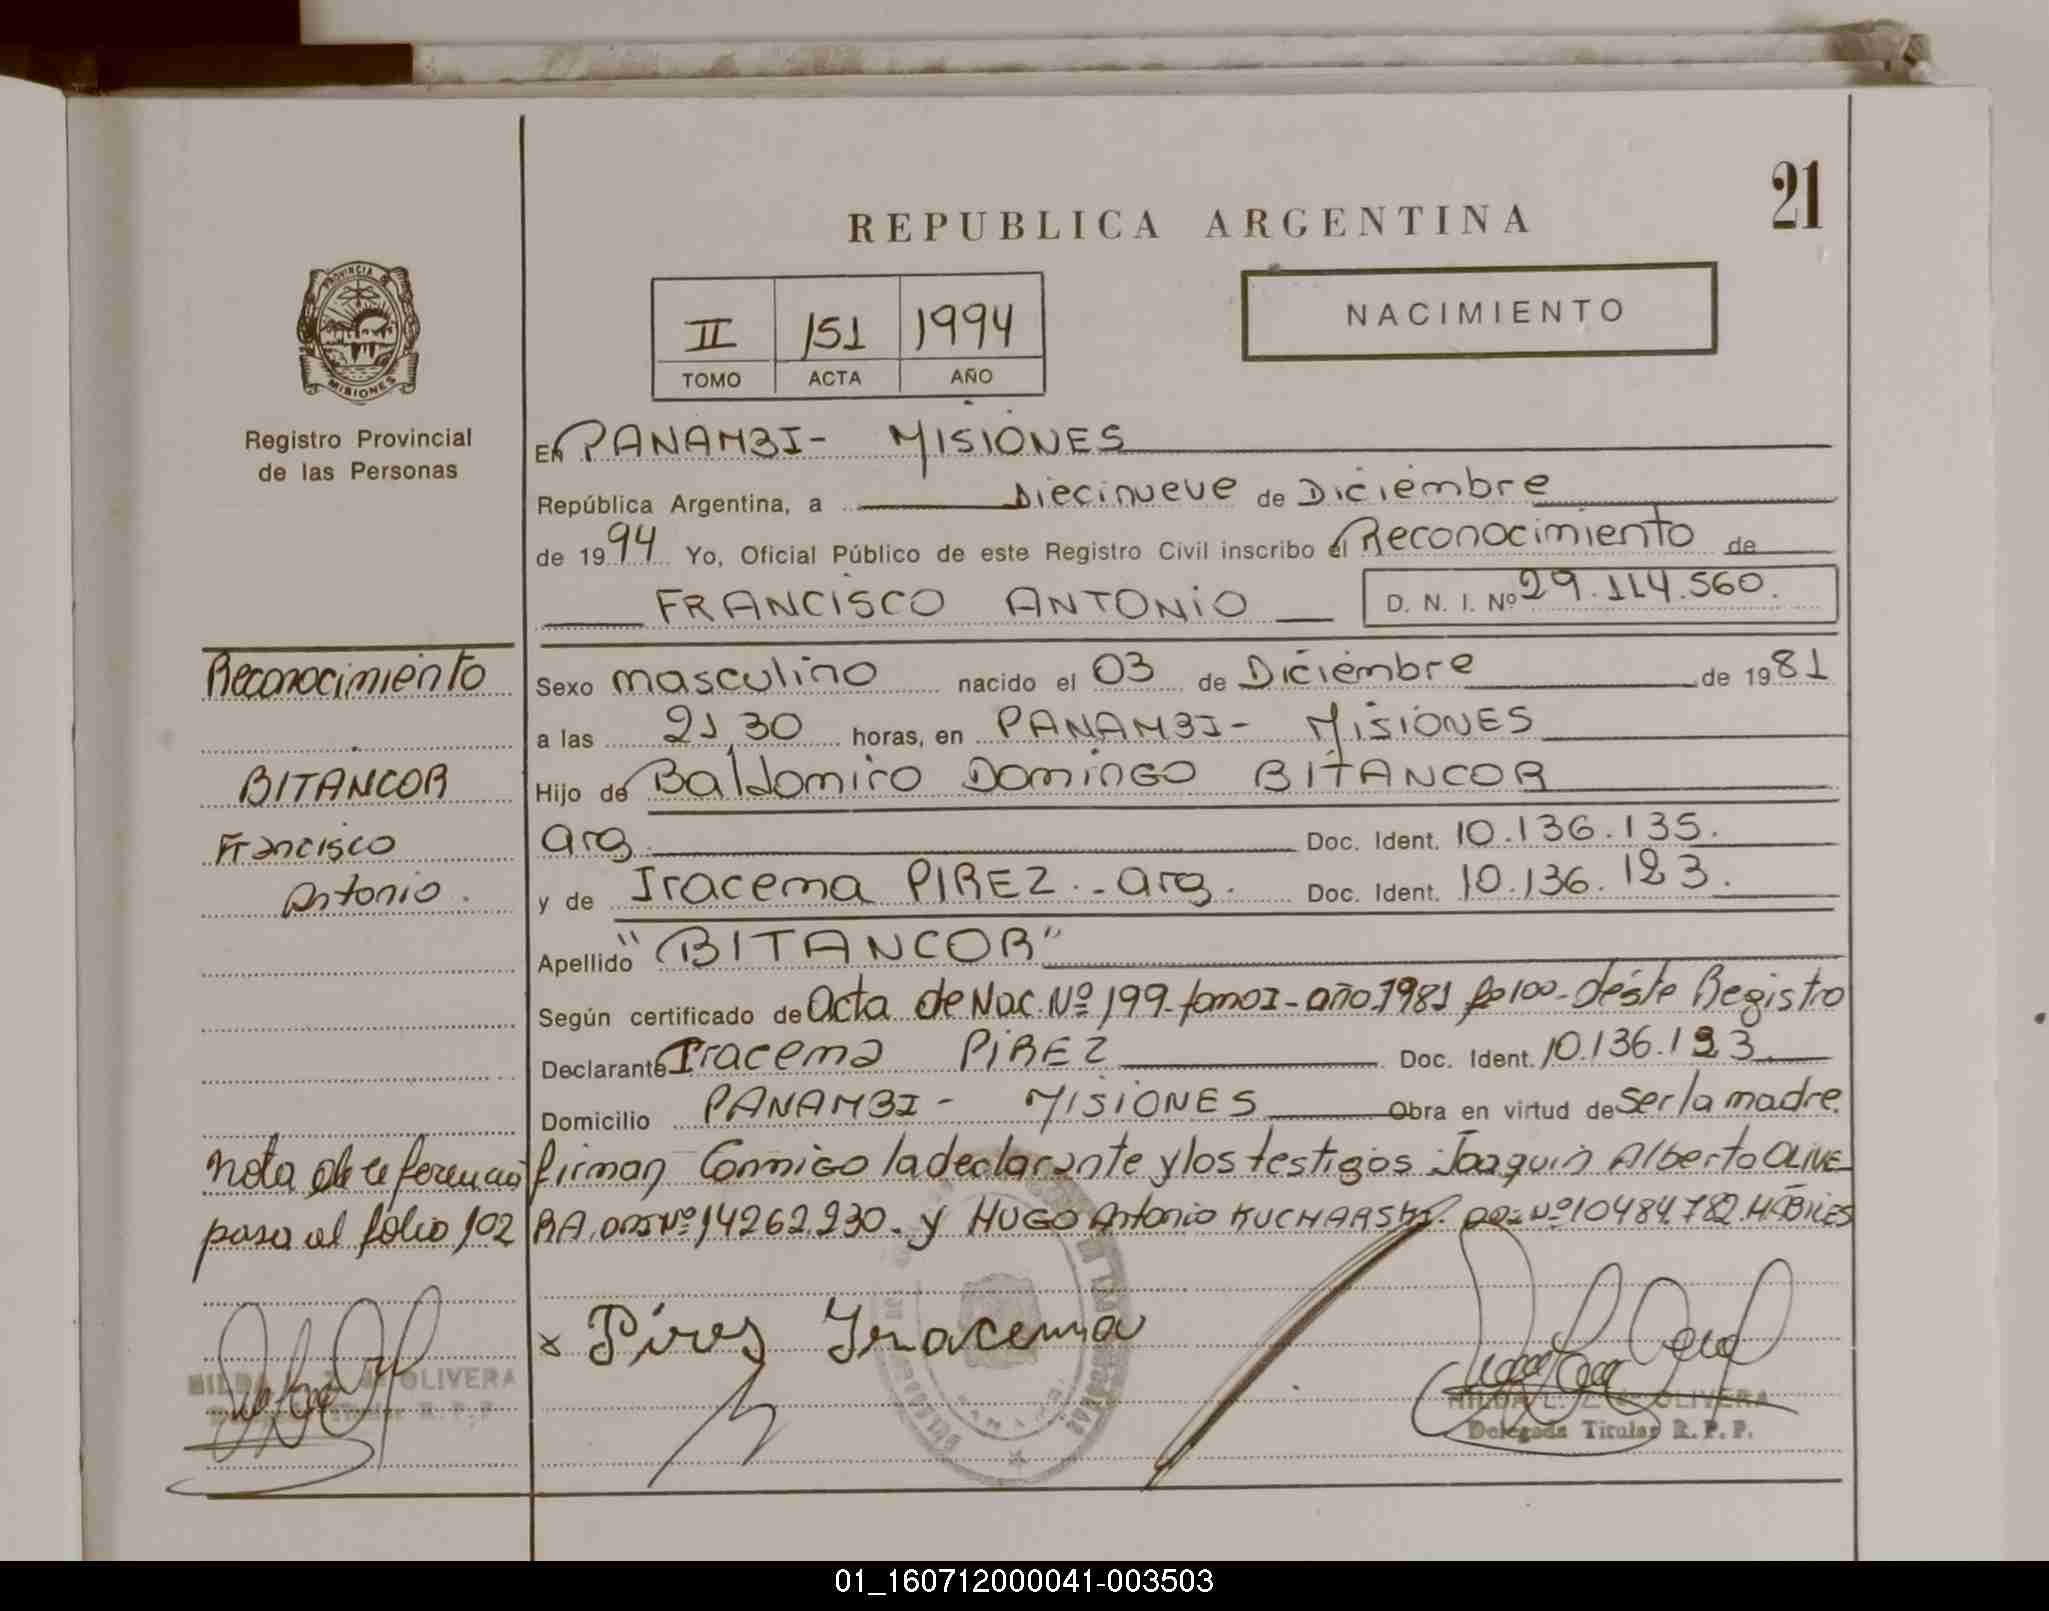 21
REPUBLICA ARGENTINA
PROVINCIA DE
MISIONES
II 151 1994
TOMO ACTA AÑO
NACIMIENTO
Registro Provincial
de las Personas
En PANAMBI- MISIONES
República Argentina, a Diecinueve de Diciembre
de 1994 Yo, Oficial Público de este Registro Civil inscribo el Reconocimiento de
FRANCISCO ANTONIO D. N. I. Nº 29.114.560.
Reconocimiento
BITANCOR
Francisco
Antonio.
Sexo masculino nacido el 03 de Diciembre de 1981
a las 21 30 horas, en PANAMBI- MISIONES
Hijo de Baldomiro Domingo BITANCOR
arg. Doc. Ident. 10.136.135.
y de Iracema PIREZ.-arg. Doc. Ident. 10.136.123.
Apellido "BITANCOR"
Según certificado de Acta de Nac. Nº 199-tomo I-año 1981 fº 100-déste Registro
Declarante Iracema PIREZ Doc. Ident. 10.136.123
Domicilio PANAMBI- MISIONES Obra en virtud de Ser la madre.
firman Conmigo la declarante y los testigos Joaquin Alberto OLIVE
RA, DNI Nº 14262.230. y HUGO Antonio KUCHARSKI. DNI Nº 10484.782. HABILES
nota de referencia
pasa al folio 102
x Pires Iracema
OLIVERA
HILDA L. Z. de OLIVERA
Delegada Titular R. P. P.
01_160712000041-003503